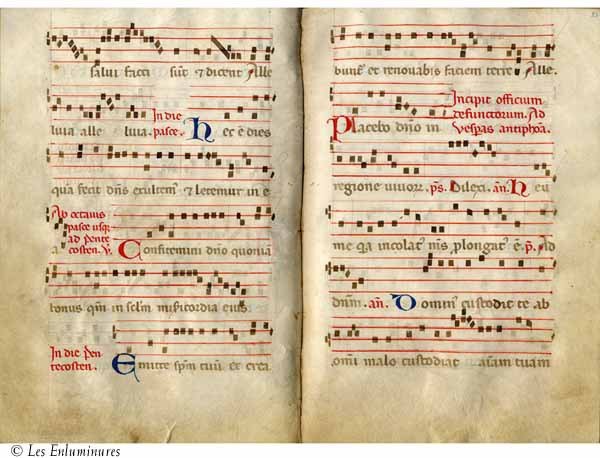 salui facti sūt & dicent Alle
In die
luia alle luia. pasce. Hec ē dies
qua fecit dn̄s exultem᷒ & letemur in e
Ab octauis
pasce usq;
ad pente
a costen. V. Confitemini dn̄o quoniā
bonus qm̄ in sclm̄ misicordia eius.
In die pen
tecosten. Emitte spm̄ tuū et crea
bunt̄ et renouabis faciem terre Alle.
Incipit officium
defunctorum. Ad
Placebo dn̄o in vespas antiphōa.
regione viuor. ps. Dilexi. an. Heu
me qa incolat᷒ m̄s plongat᷒ ē. ps. Ad
dn̄m. an. Domin᷒ custodit te ab
omī malo custodiat aīam tuam
© Les Enluminures